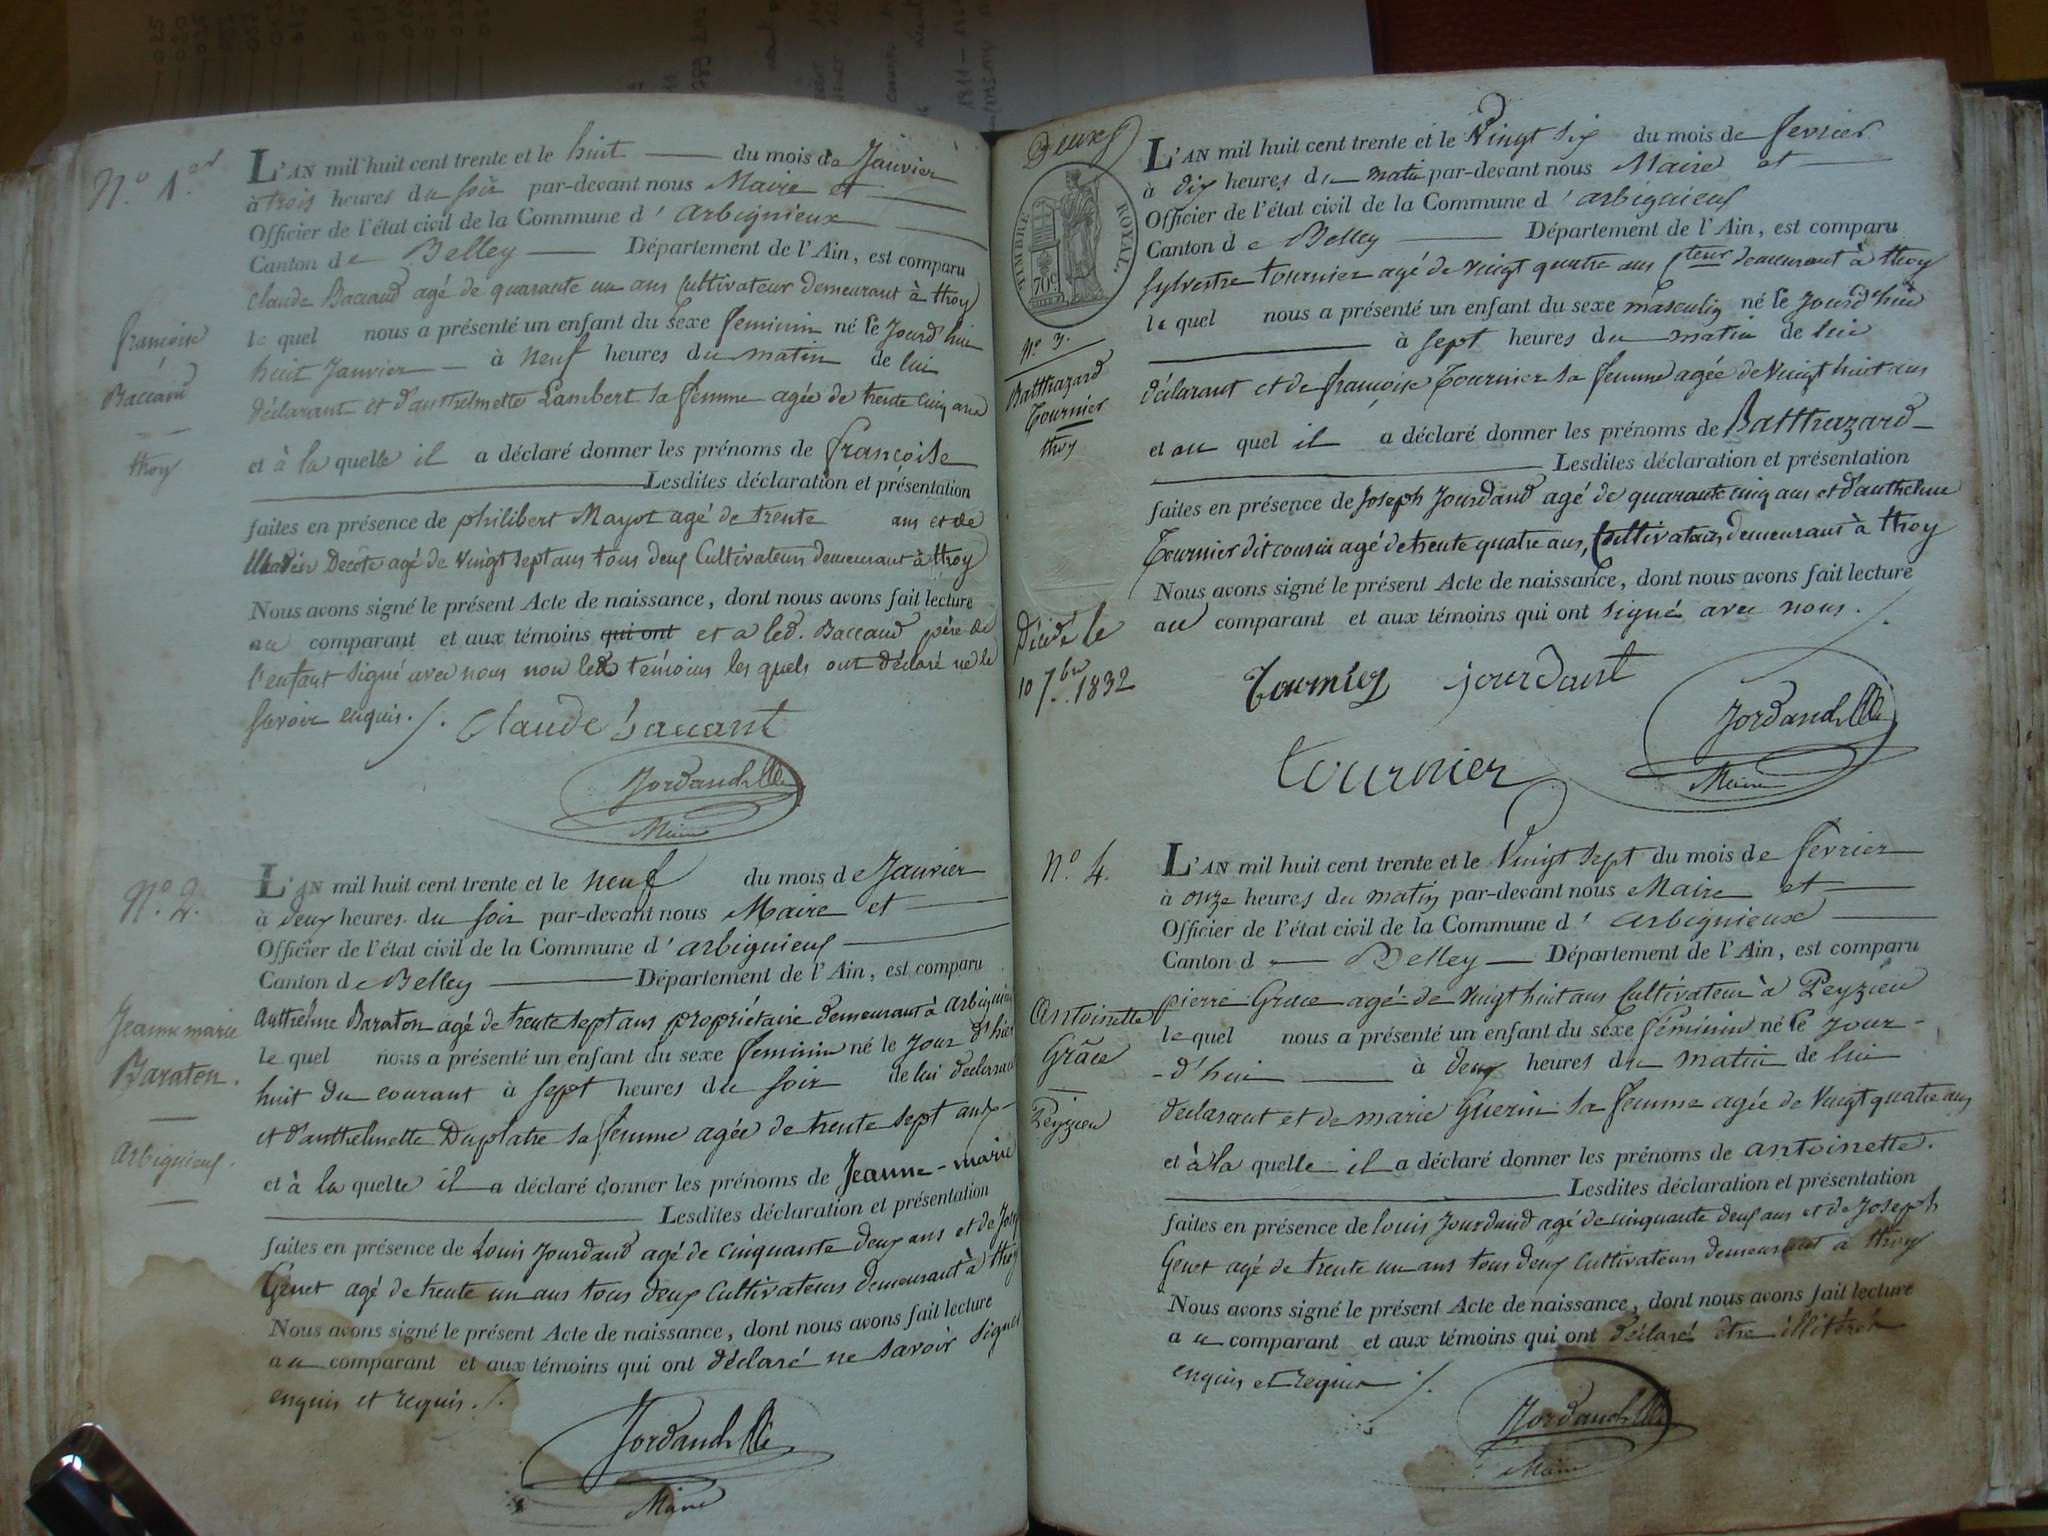 N.º 1.er
L'AN mil huit cent trente et le huit du mois de Janvier
à trois heures du soir par-devant nous Maire et
Officier de l'état civil de la Commune d'arbignieux
Canton de Belley Département de l'Ain, est comparu
Claude Baccard agé de quarante un ans Cultivateur demeurant à thoy
le quel nous a présenté un enfant du sexe feminin né le Jourd'hui
huit Janvier à neuf heures du matin de lui
déclarant et d'anthelmette Lambert sa femme agée de trente cinq ans
et à la quelle il a déclaré donner les prénoms de françoise
Lesdites déclaration et présentation
faites en présence de philibert Mayot agé de trente ans et de
Decote agé de vingt sept ans tous deux Cultivateurs demeurant à thoy
Nous avons signé le présent Acte de naissance, dont nous avons fait lecture
au comparant et aux témoins qui ont et a led. Baccard père de
l'enfant signé avec nous non led. témoins les quels ont déclaré ne le
savoir enquis ./.
françoise
Baccard
thoy
Claude baccant
Jordand
Maire
N.º 2.
L'AN mil huit cent trente et le neuf du mois de Janvier
à deux heures du soir par-devant nous Maire et
Officier de l'état civil de la Commune d'arbignieux
Canton de Belley Département de l'Ain, est comparu
Anthelme Baraton agé de trente sept ans propriétaire demeurant à arbignieux
le quel nous a présenté un enfant du sexe feminin né le Jour d'hier
huit du courant à sept heures du soir de lui declarant
et d'anthelmette Duplatre sa femme agée de trente sept ans
et à la quelle il a déclaré donner les prénoms de Jeanne-marie
Lesdites déclaration et présentation
faites en présence de Louis Jourdand agé de cinquante deux ans et de
Genet agé de trente un ans tous deux Cultivateurs demeurant à thoy
Nous avons signé le présent Acte de naissance, dont nous avons fait lecture
au comparant et aux témoins qui ont déclaré ne savoir signer
enquis et requis ./.
Jeanne marie
Baraton.
Arbignieux.
Jordand
Maire
Deux
TIMBRE ROYAL
70c
Nº 3.
Batthazard
Tournier
thoy
Décédé le
10 7.bre 1832
L'AN mil huit cent trente et le Vingt six du mois de fevrier
à dix heures du matin par-devant nous Maire et
Officier de l'état civil de la Commune d'arbignieux
Canton de Belley Département de l'Ain, est comparu
Sylvestre tournier agé de vingt quatre ans Cteur demeurant à thoy
le quel nous a présenté un enfant du sexe masculin né le Jourd'hui
à sept heures du matin de lui
déclarant et de françoise Tournier sa femme agée de Vingt huit ans
et au quel il a déclaré donner les prénoms de Batthazard
Lesdites déclaration et présentation
faites en présence de Joseph Jourdand agé de quarante cinq ans et d'anthelme
Tournier dit cousin agé de trente quatre ans, Cultivateurs demeurant à thoy
Nous avons signé le présent Acte de naissance, dont nous avons fait lecture
au comparant et aux témoins qui ont signé avec nous ./.
Tournier jourdant
Jordand
Maire
tournier
Nº. 4.
L'AN mil huit cent trente et le Vingt sept du mois de fevrier
à onze heures du matin par-devant nous Maire et
Officier de l'état civil de la Commune d'arbignieux
Canton de Belley Département de l'Ain, est comparu
pierre Grace agé de Vingt huit ans Cultivateur à Peyzieu
le quel nous a présenté un enfant du sexe feminin né le Jour-
-d'hui à deux heures du matin de lui
declarant et de marie Guerin sa femme agée de Vingt quatre ans
et à la quelle il a déclaré donner les prénoms de antoinette.
Lesdites déclaration et présentation
faites en présence de Louis Jourdand agé de cinquante deux ans et de Joseph
Genet agé de trente un ans tous deux Cultivateurs demeurant à thoy
Nous avons signé le présent Acte de naissance, dont nous avons fait lecture
au comparant et aux témoins qui ont déclaré être illitérés
enquis et requis ./.
Antoinette
Grâce
Peyzieu
Jordand
Maire